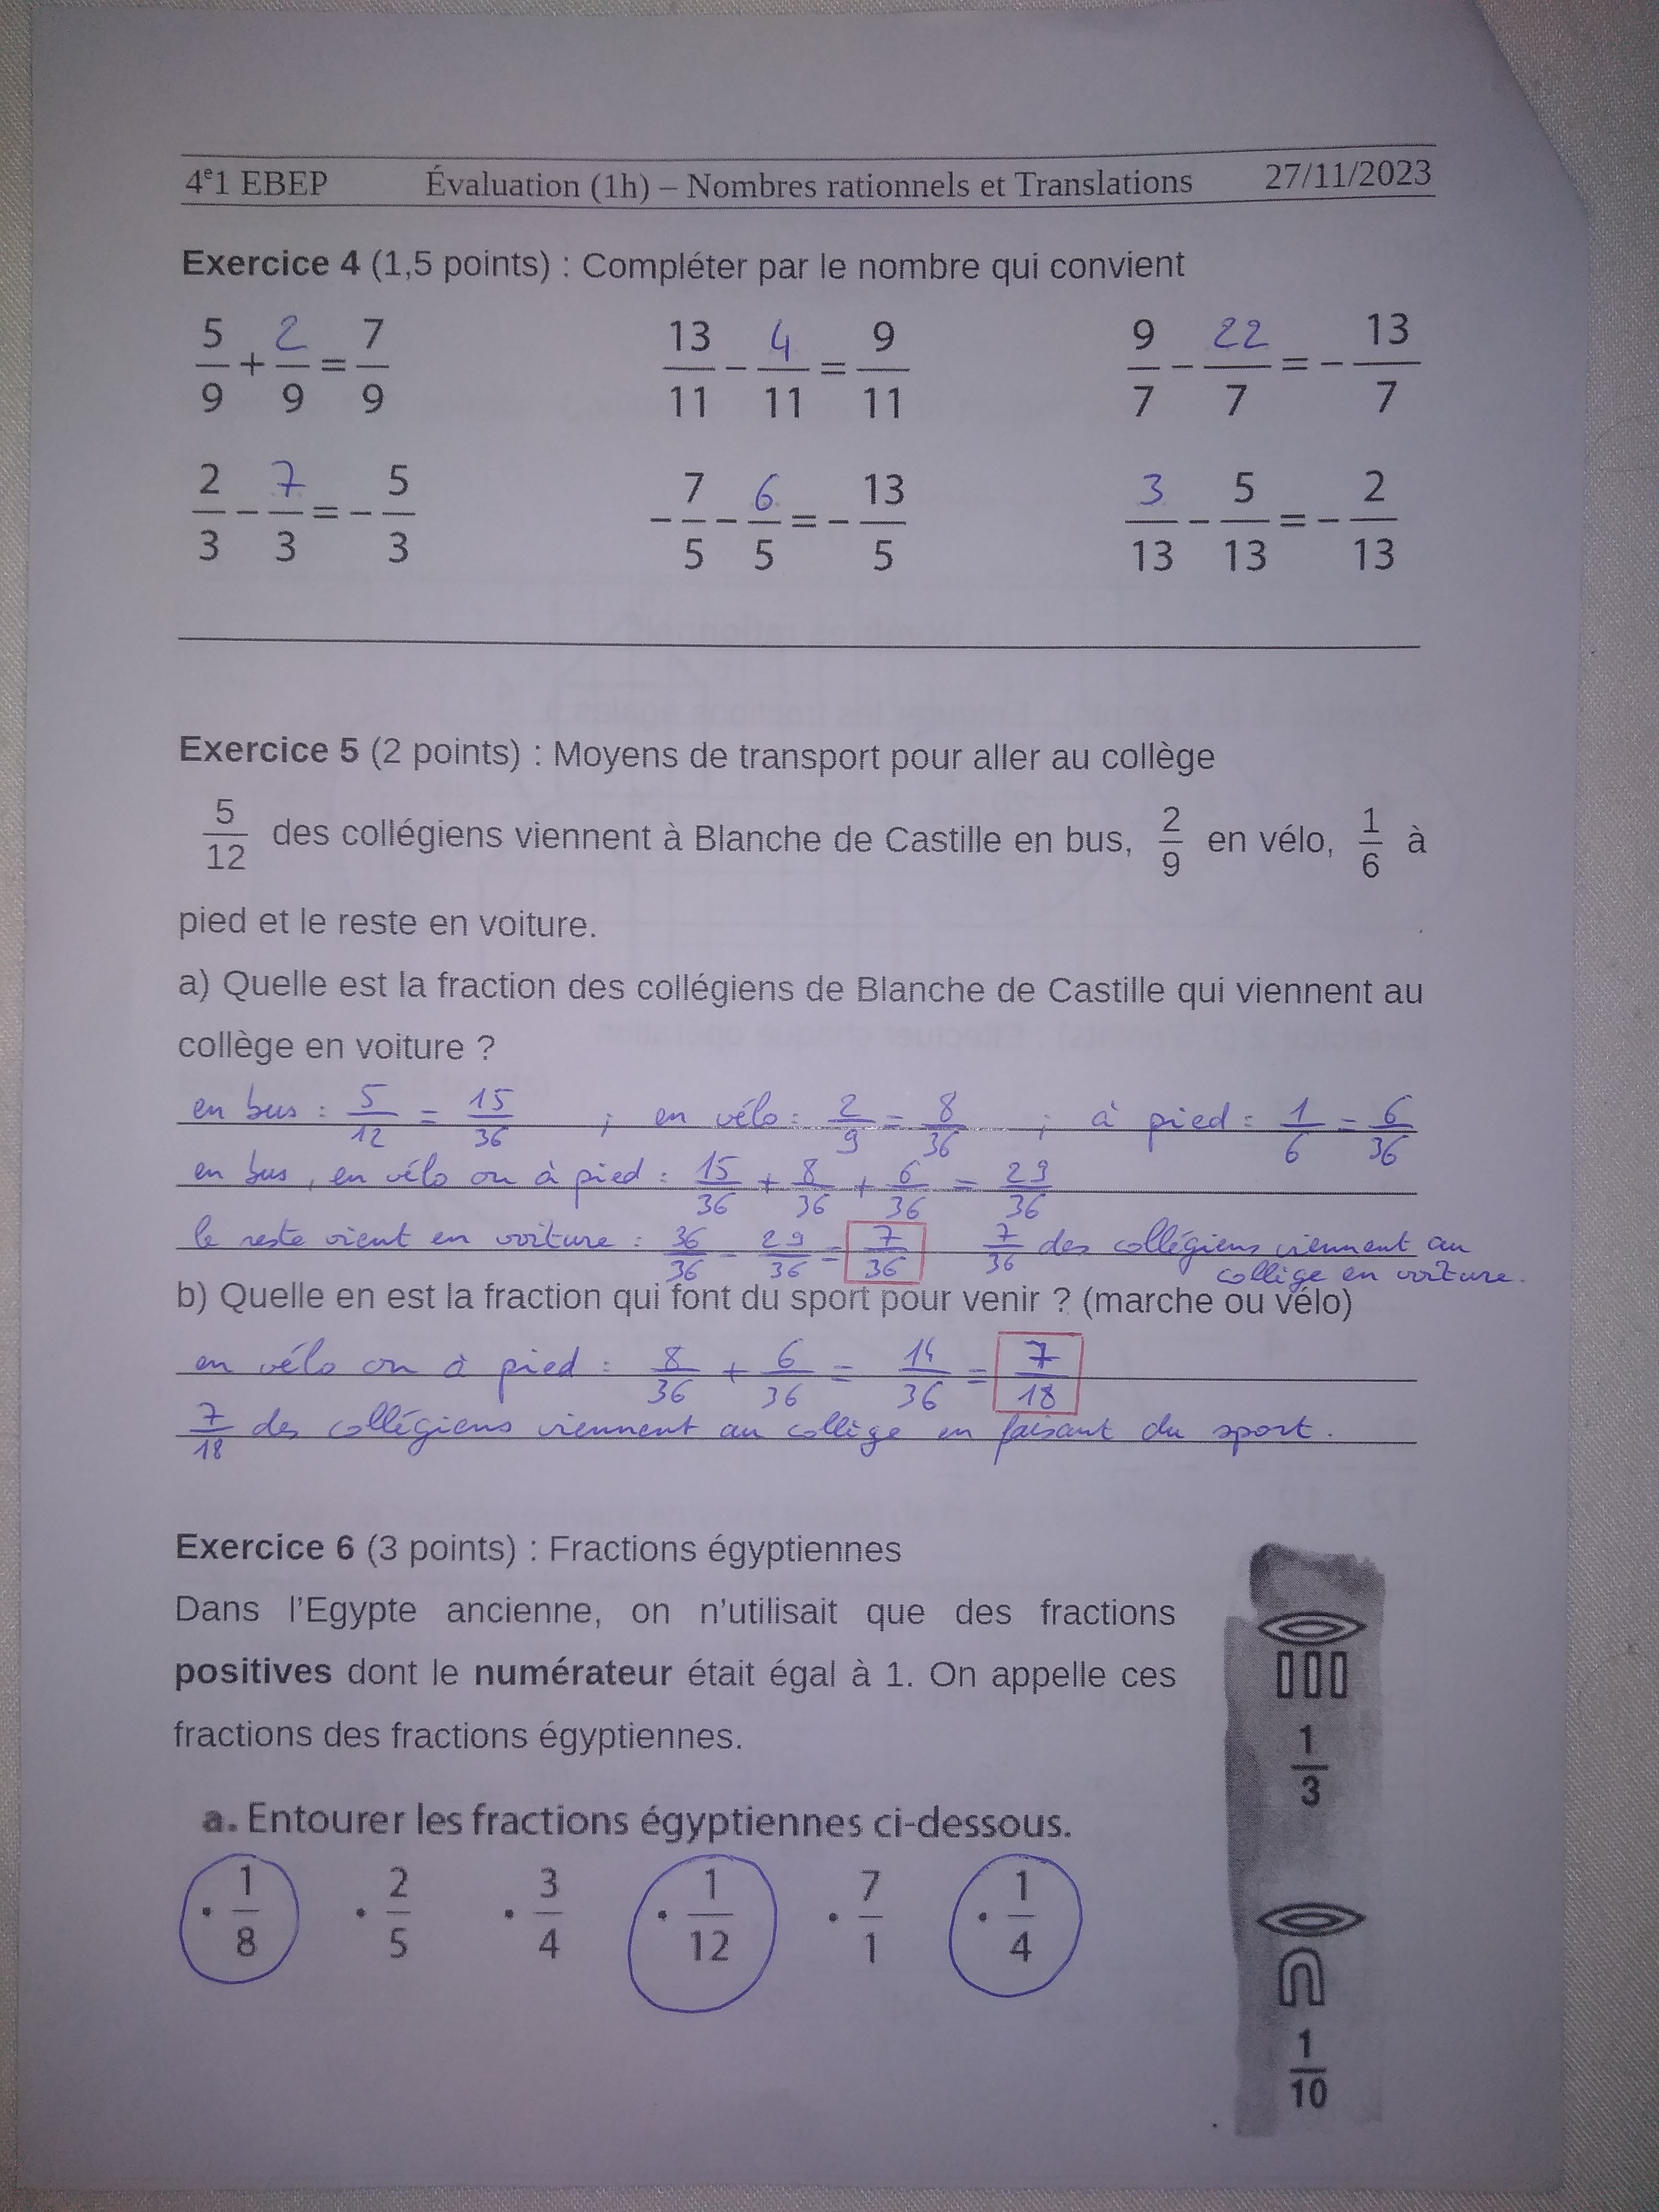 4e1 EBEP Évaluation (1h) – Nombres rationnels et Translations 27/11/2023
Exercice 4 (1,5 points) : Compléter par le nombre qui convient
5/9 + 2/9 = 7/9 13/11 - 4/11 = 9/11 9/7 - 22/7 = - 13/7
2/3 - 7/3 = - 5/3 - 7/5 - 6/5 = - 13/5 3/13 - 5/13 = - 2/13
Exercice 5 (2 points) : Moyens de transport pour aller au collège
5/12 des collégiens viennent à Blanche de Castille en bus, 2/9 en vélo, 1/6 à
pied et le reste en voiture.
a) Quelle est la fraction des collégiens de Blanche de Castille qui viennent au
collège en voiture ?
en bus : 5/12 = 15/36 ; en vélo : 2/9 = 8/36 ; à pied : 1/6 = 6/36
en bus, en vélo ou à pied : 15/36 + 8/36 + 6/36 = 29/36
le reste vient en voiture : 36/36 - 29/36 = 7/36 7/36 des collégiens viennent au
collège en voiture.
b) Quelle en est la fraction qui font du sport pour venir ? (marche ou vélo)
en vélo ou à pied : 8/36 + 6/36 = 14/36 = 7/18
7/18 des collégiens viennent au collège en faisant du sport.
Exercice 6 (3 points) : Fractions égyptiennes
Dans l'Egypte ancienne, on n'utilisait que des fractions
positives dont le numérateur était égal à 1. On appelle ces
fractions des fractions égyptiennes.
a. Entourer les fractions égyptiennes ci-dessous.
· 1/8 · 2/5 · 3/4 · 1/12 · 7/1 · 1/4
1/3
1/10